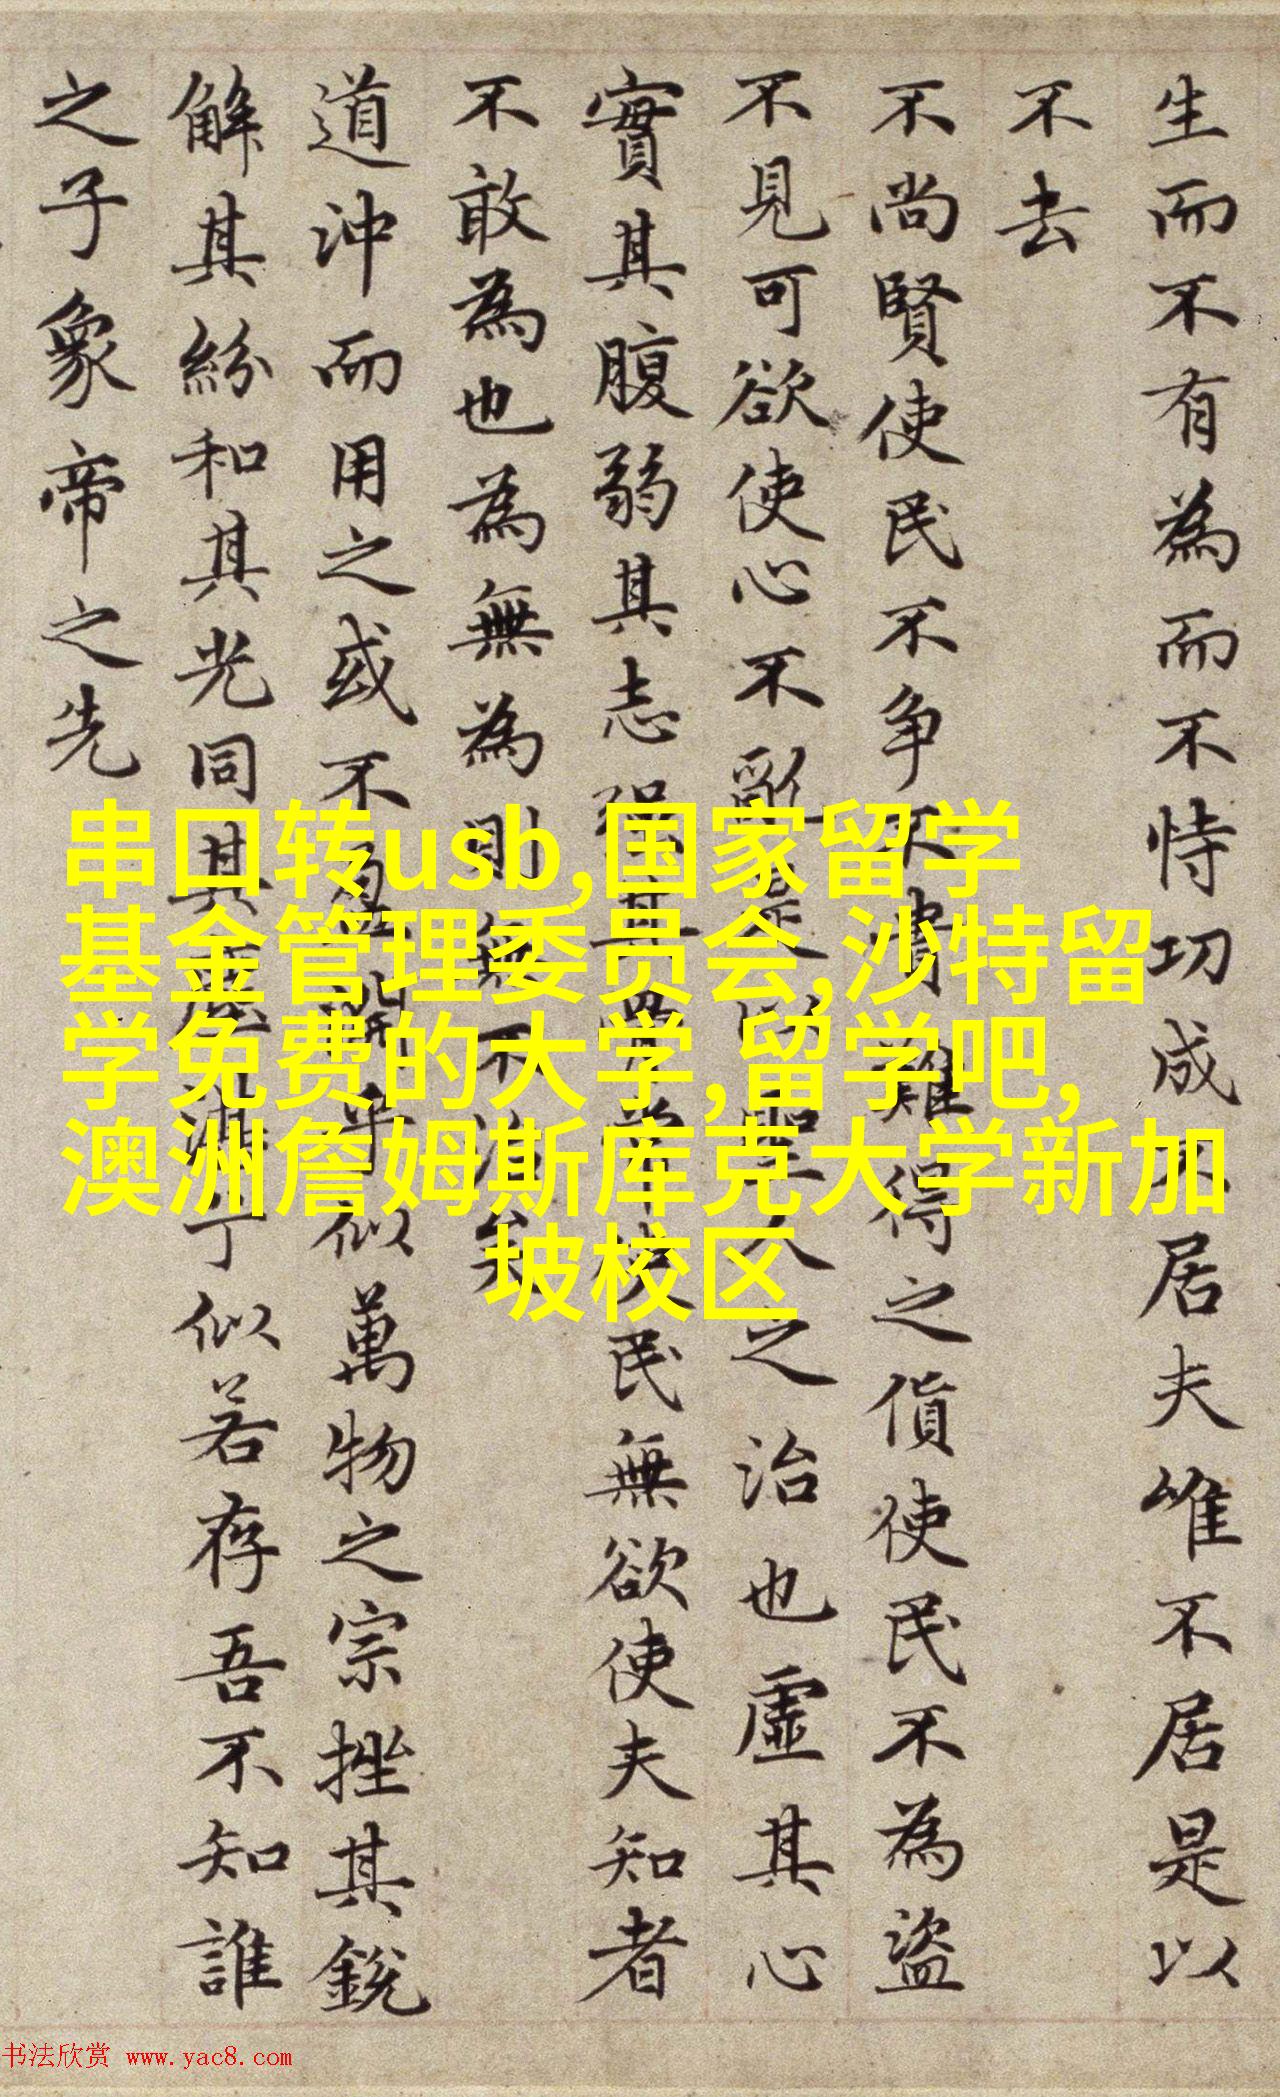 生而不有為而不恃功成不居夫唯不居是以
不去
不尚賢使民不争不貴難得之貨使民不為盜
不見可欲使心不亂是以聖人之治也虛其心
實其腹弱其志强其骨常使民無欲使夫知者
不敢為也為無為則無不治矣
道沖而用之或不盈淵乎似萬物之宗挫其銳
解其紛和其光同其塵湛兮似若存吾不知誰
之子象帝之先
串口转usb,国家留学
基金管理委员会,沙特留
学免费的大学,留学吧,
澳洲詹姆斯库克大学新加
坡校区
书法欣赏 www.yac8.com